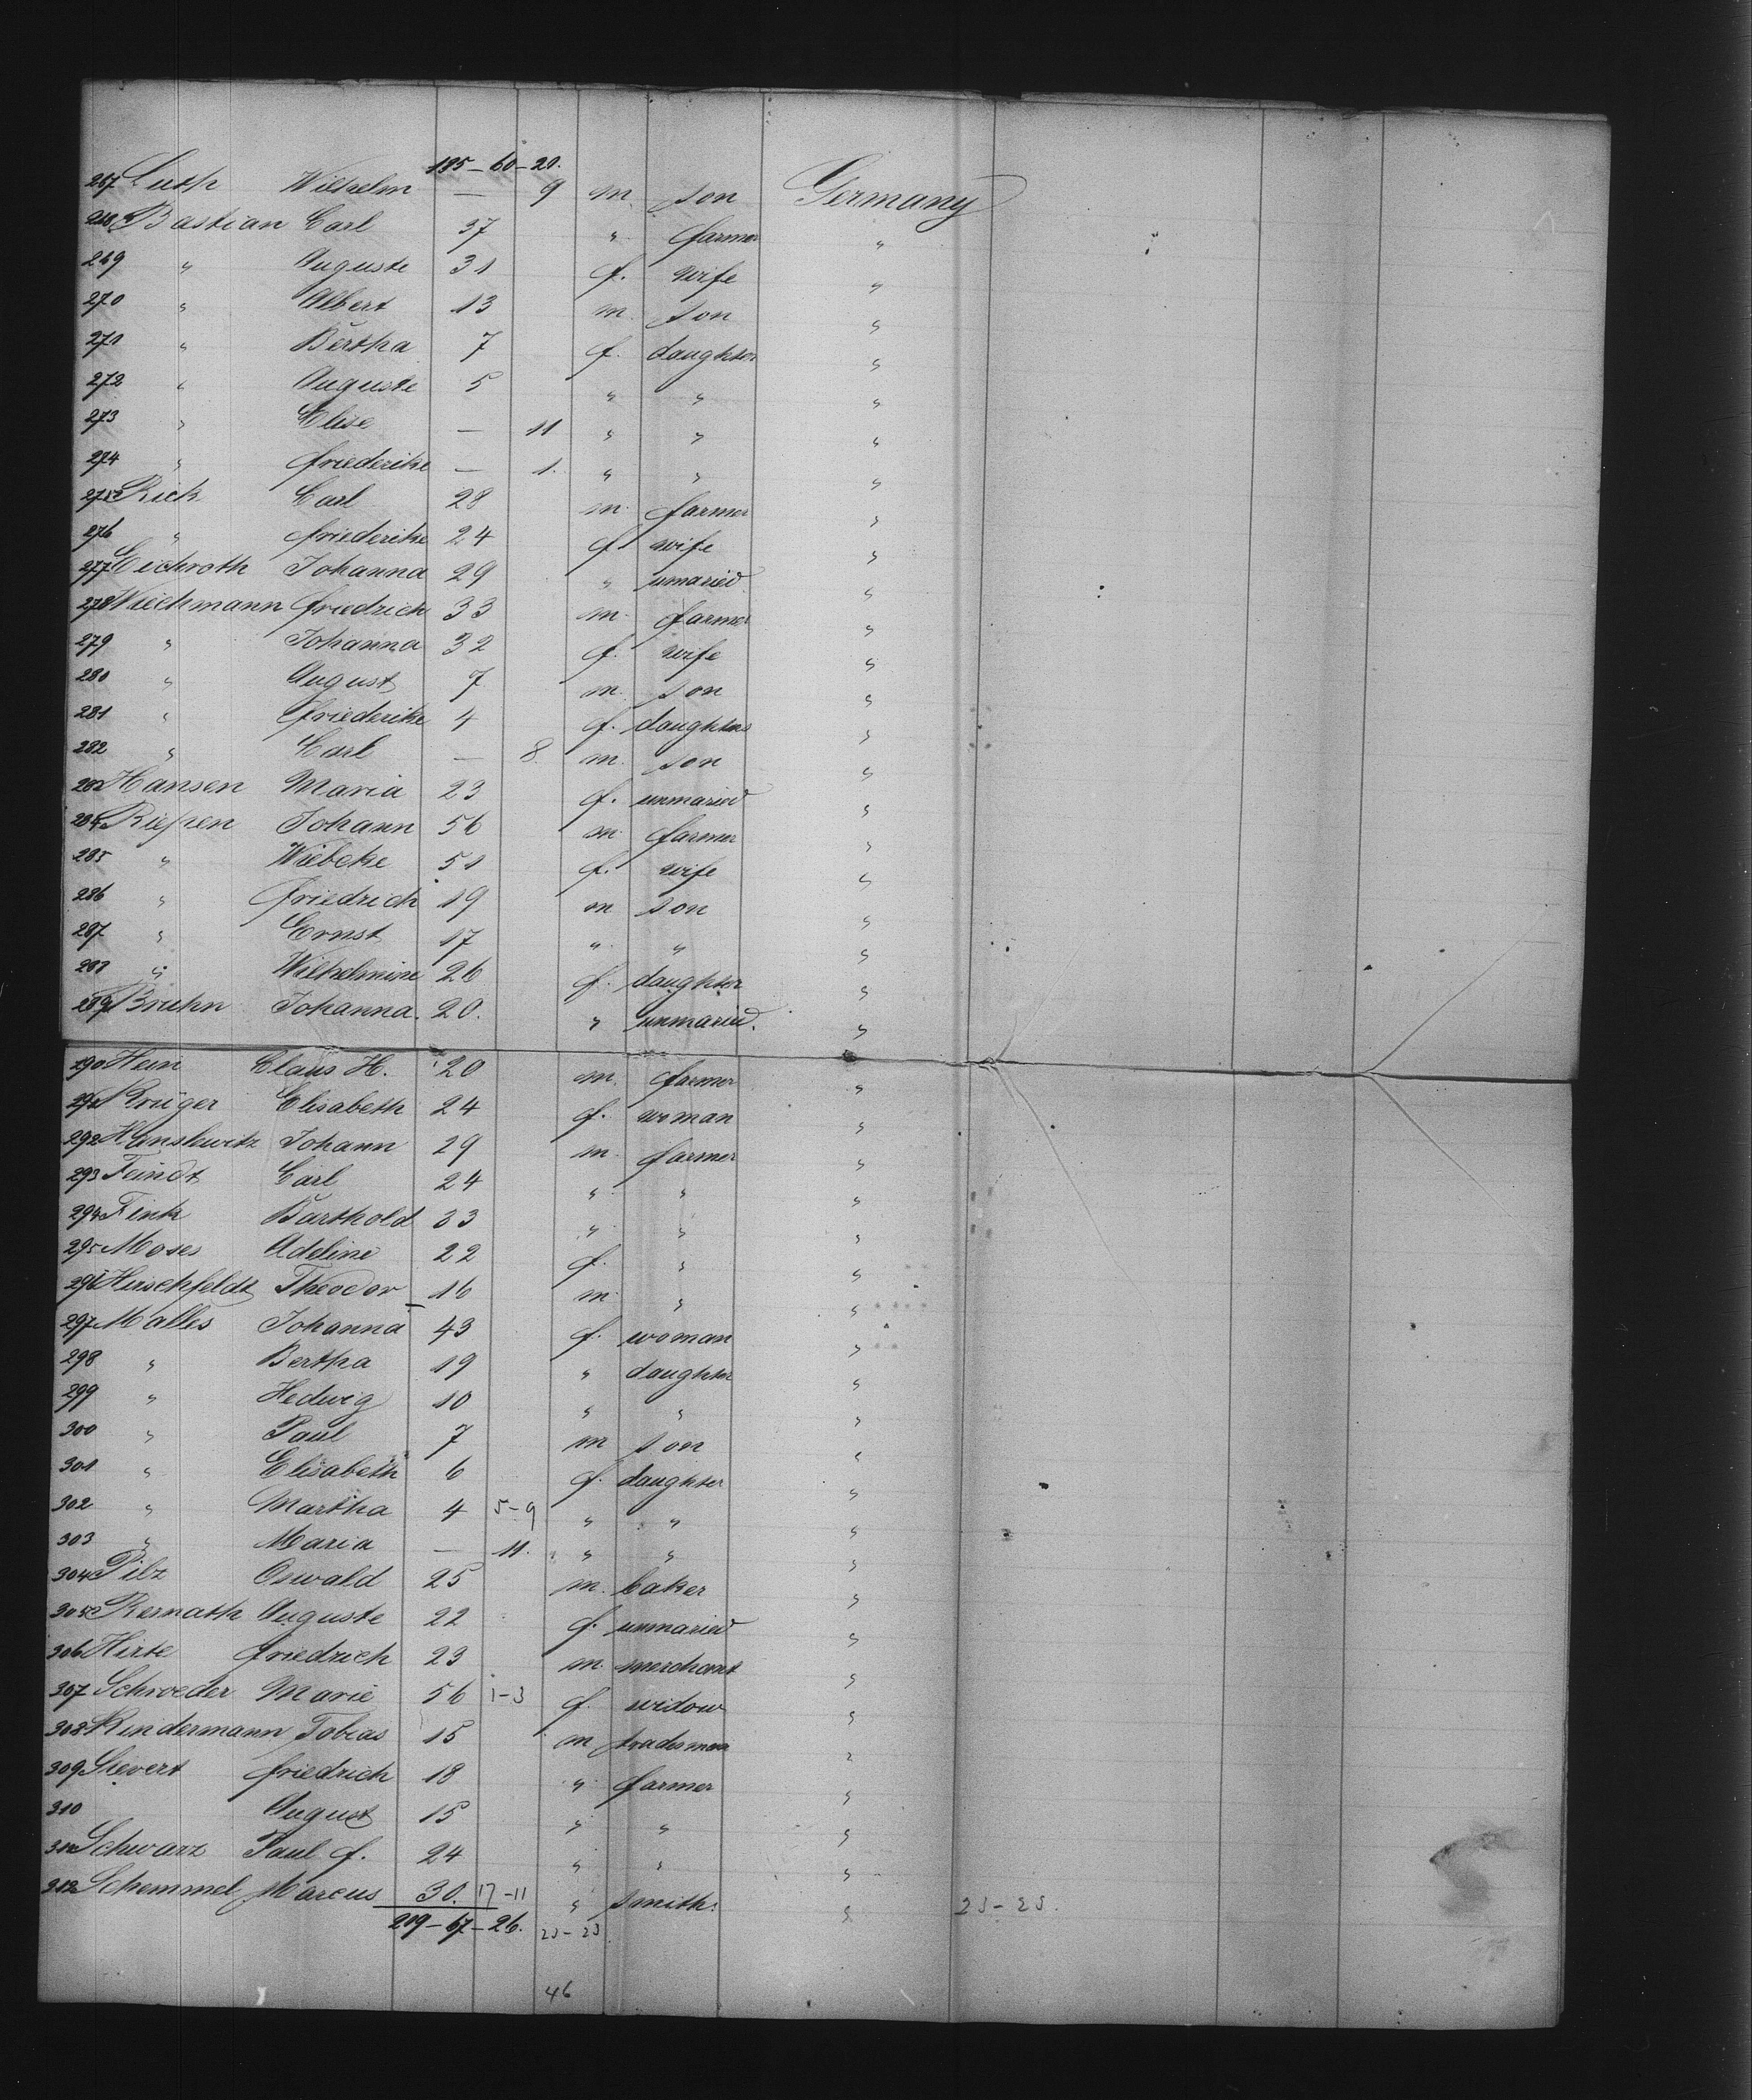 185 - 60 - 20.
267 Luth Wilhelm — 9 m. son Germany
268 Bastian Carl 37 " farmer "
269 " Auguste 31 f. wife "
270 " Albert 13 m. son "
271 " Bertha 7 f. daughter "
272 " Auguste 5 " " "
273 " Elise — 11 " " "
274 " Friederike — 1. " " "
275 Rick Carl 28 m. farmer "
276 " Friederike 24 f. wife "
277 Eichroth Johanna 29 " unmaried "
278 Wiechmann Friedrich 33 m. farmer "
279 " Johanna 32 f. wife "
280 " August 7 m. son "
281 " Friederike 4 f. daughters "
282 " Carl — 8. m. son "
283 Hansen Maria 23 f. unmaried "
284 Riepen Johann 56 m. farmer "
285 " Wiebcke 51 f. wife "
286 " Friedrich 19 m son "
287 " Ernst 17 " " "
288 " Wilhelmine 26 f. daughter "
289 Bruhn Johanna. 20. " unmaried. "
290 Hein Claus H. 20 m. farmer "
291 Krüger Elisabeth 24 f. woman "
292 Johann 29 m. farmer "
293 Feindt Carl 24 " " "
294 Fink Barthold 33 " " "
295 Moses Adeline 22 f. " "
296 Hirschfeldt Theodor 16 m. " "
297 Malles Johanna 43 f. woman "
298 " Bertha 19 " daughter "
299 " Hedwig 10 " " "
300 " Paul 7 m son "
301 " Elisabeth 6 f. daughter "
302 " Martha 4 5-9 " " "
303 " Maria — 11. " " "
304 Pilz Oswald 25 m. baker "
305 Auguste 22 f. unmaried "
306 Hirte Friedrich 23 m. merchant "
307 Schroeder Marie 56 1-3 f. widow "
308 Kindermann Tobias 15 m tradesman "
309 Sievert Friedrich 18 " farmer "
310 August 15 " " "
311 Schwarz Paul F. 24 " " "
312 Schemmel Marcus 30. 17-11 " smith. " 23-23.
219 - 67 - 26. 23-23
46